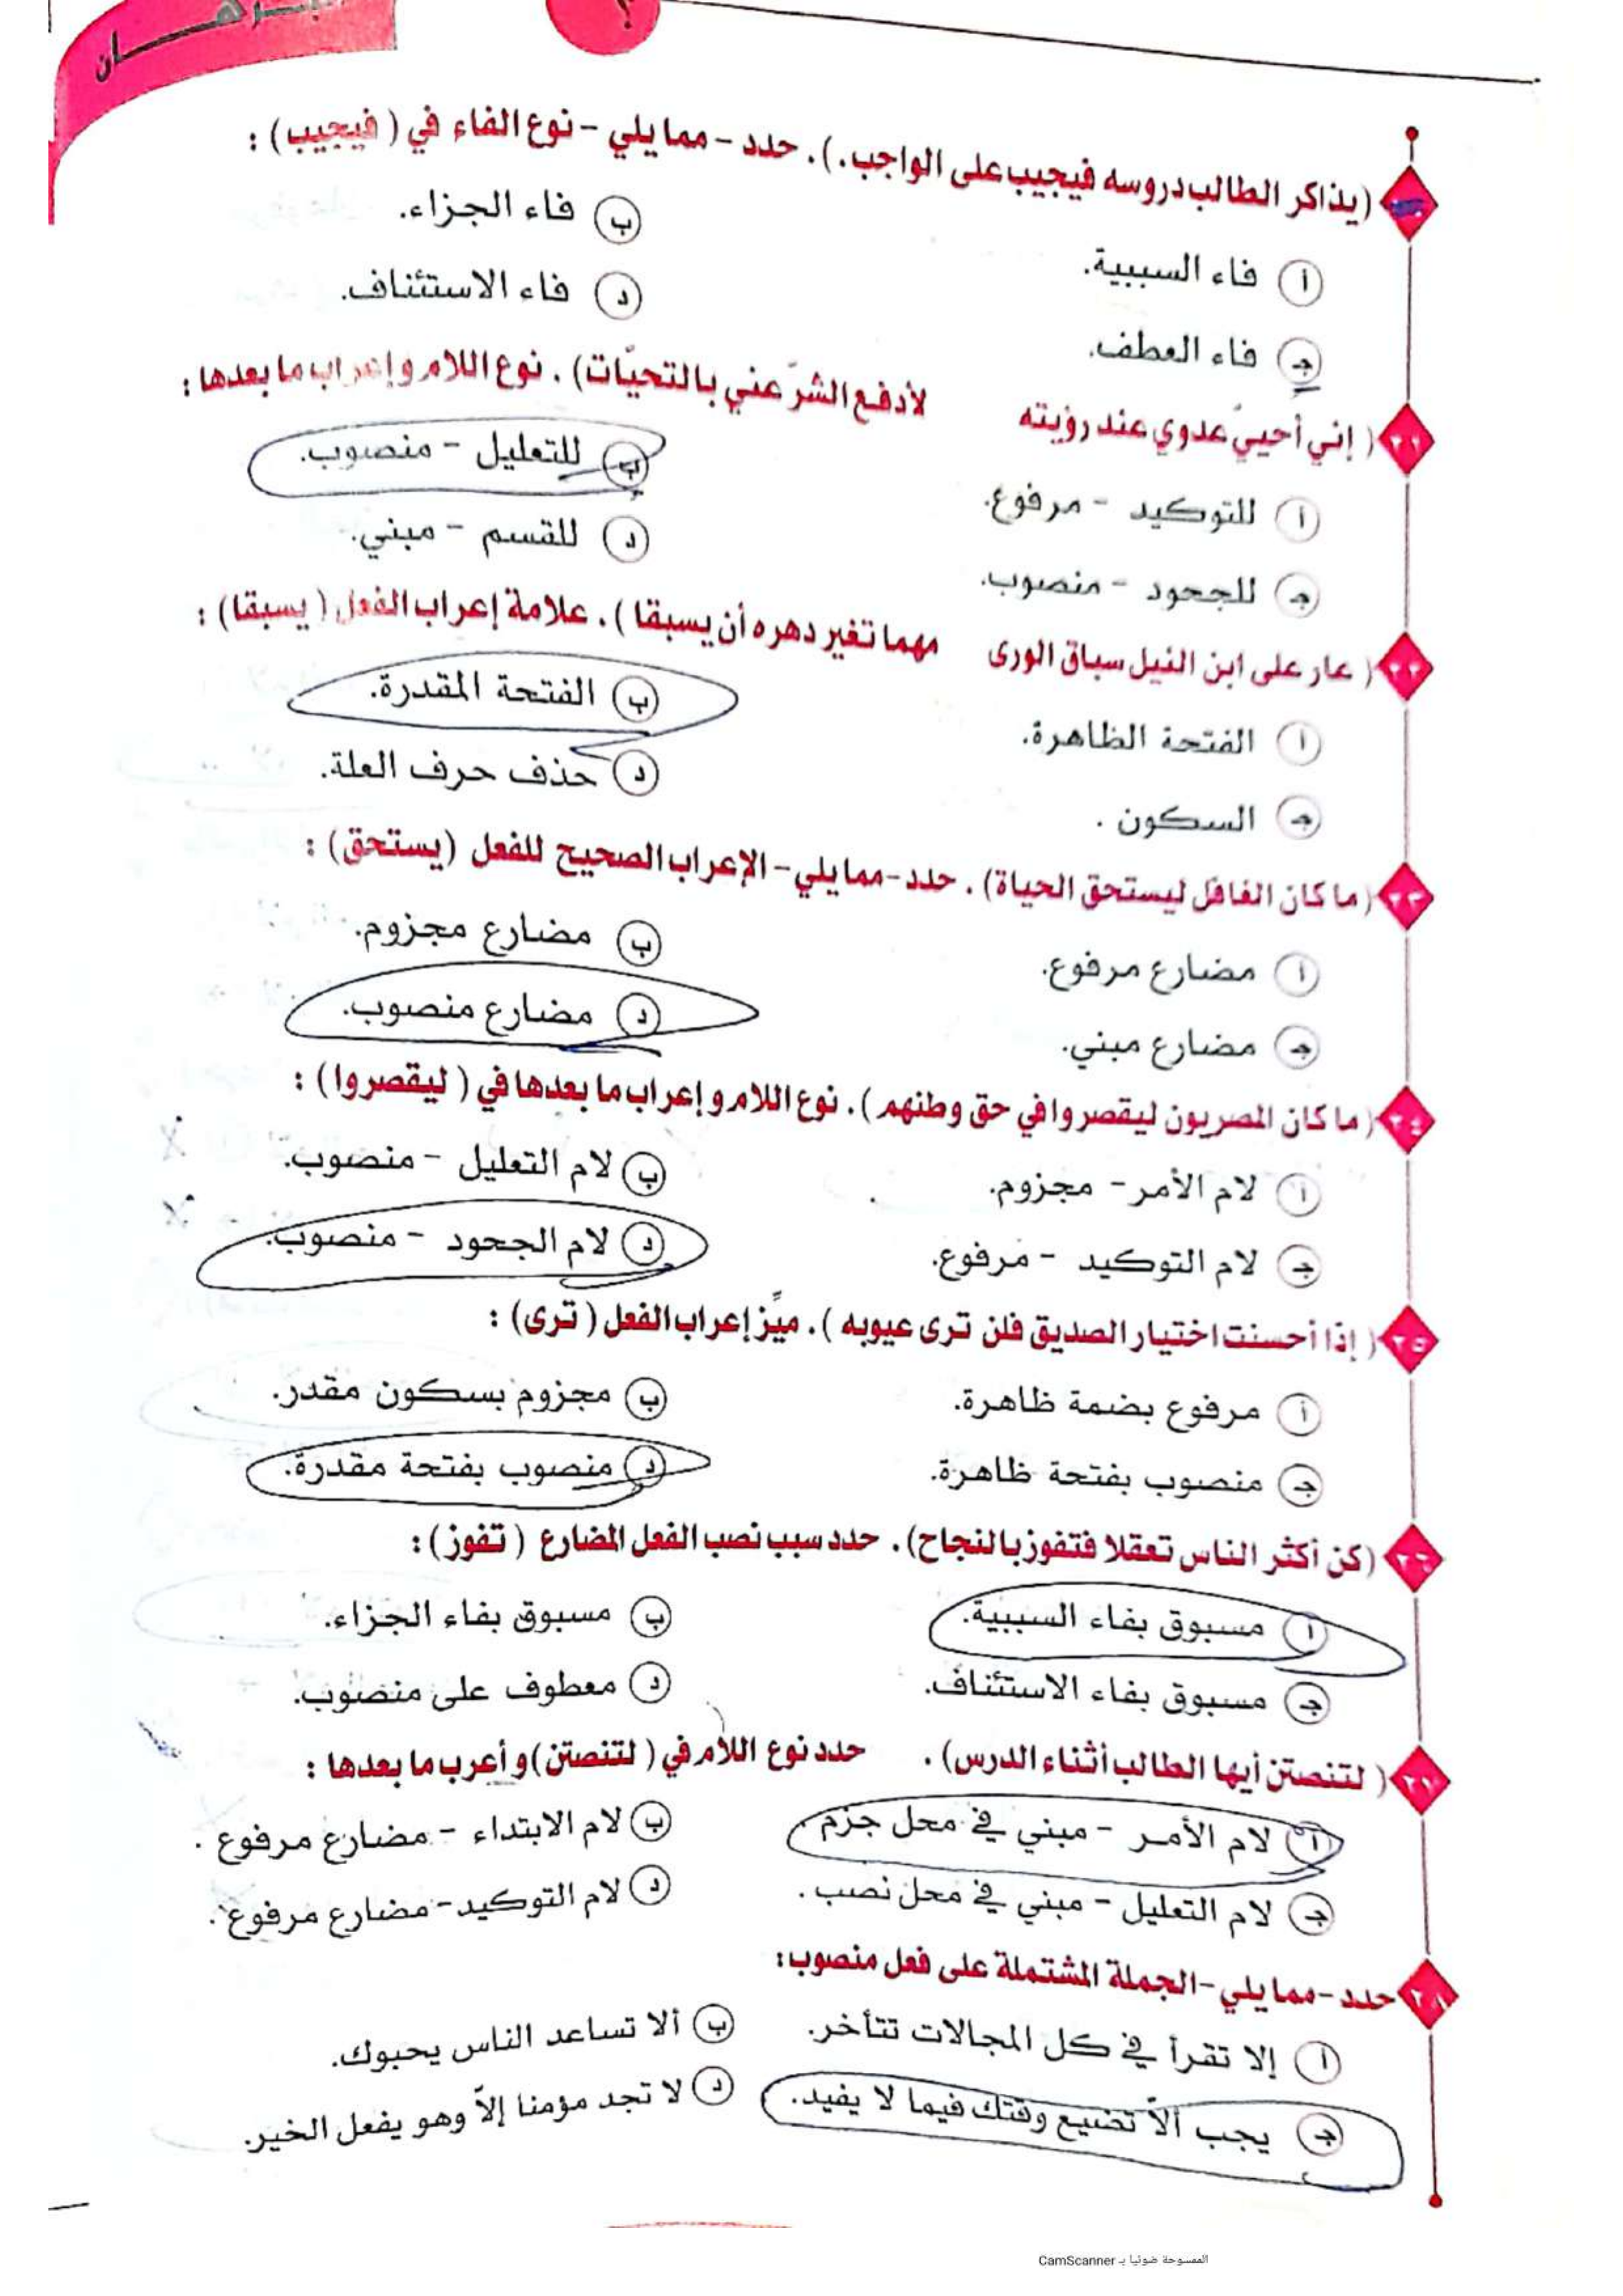 برهان
؟
(يذاكر الطالب دروسه فيجيب على الواجب.). حدد - مما يلي - نوع الفاء في (فيجيب) :
أ فاء السببية.
ب فاء الجزاء.
ج فاء العطف.
د فاء الاستئناف.
٢١ (إني أحيي عدوي عند رؤيته لأدفع الشرَّ عني بالتحيّات). نوع اللام وإعراب ما بعدها :
أ للتوكيد - مرفوع.
ب للتعليل - منصوب.
ج للجحود - منصوب.
د للقسم - مبني.
٢٢ (عار على ابن النيل سباق الورى مهما تغير دهره أن يسبقا). علامة إعراب الفعل (يسبقا) :
أ الفتحة الظاهرة.
ب الفتحة المقدرة.
ج السكون .
د حذف حرف العلة.
٢٣ (ما كان الغافل ليستحق الحياة). حدد-مما يلي-الإعراب الصحيح للفعل (يستحق) :
أ مضارع مرفوع.
ب مضارع مجزوم.
ج مضارع مبني.
د مضارع منصوب.
٢٤ (ما كان المصريون ليقصروا في حق وطنهم). نوع اللام وإعراب ما بعدها في (ليقصروا) :
أ لام الأمر- مجزوم.
ب لام التعليل - منصوب.
ج لام التوكيد - مرفوع.
د لام الجحود - منصوب.
٢٥ (إذا أحسنت اختيار الصديق فلن ترى عيوبه). ميِّز إعراب الفعل (ترى) :
أ مرفوع بضمة ظاهرة.
ب مجزوم بسكون مقدر.
ج منصوب بفتحة ظاهرة.
د منصوب بفتحة مقدرة.
٢٦ (كن أكثر الناس تعقلا فتفوز بالنجاح). حدد سبب نصب الفعل المضارع (تفوز) :
أ مسبوق بفاء السببية.
ب مسبوق بفاء الجزاء.
ج مسبوق بفاء الاستئناف.
د معطوف على منصوب.
٢٧ (لتنصتن أيها الطالب أثناء الدرس). حدد نوع اللام في (لتنصتن) وأعرب ما بعدها :
أ لام الأمر - مبني في محل جزم
ب لام الابتداء - مضارع مرفوع .
ج لام التعليل - مبني في محل نصب .
د لام التوكيد - مضارع مرفوع.
٢٨ حدد-مما يلي-الجملة المشتملة على فعل منصوب:
أ إلا تقرأ في كل المجالات تتأخر.
ب ألا تساعد الناس يحبوك.
ج يجب ألاّ تضيع وقتك فيما لا يفيد.
د لا تجد مؤمنا إلاّ وهو يفعل الخير.
الممسوحة ضوئيا بـ CamScanner